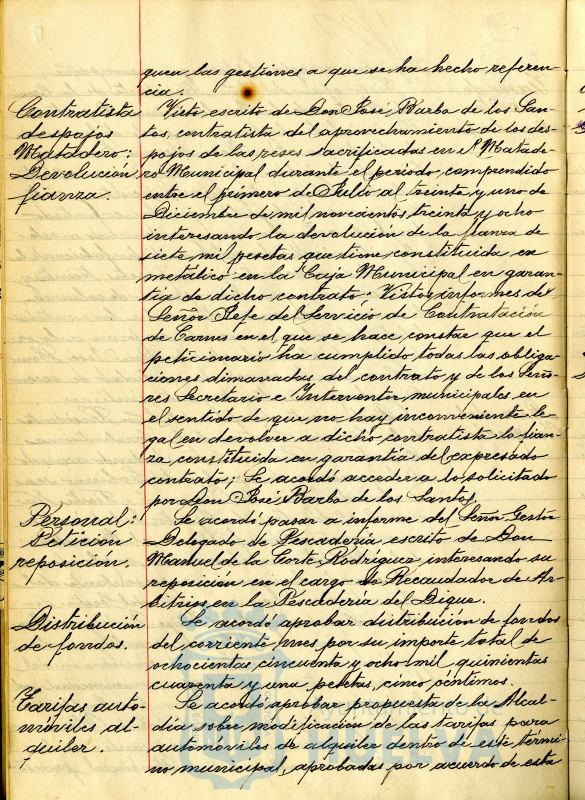 guen las gestiones a que se ha hecho referen-
cia.
Contratista
despojos
Matadero:
Devolución
fianza.
Visto escrito de Don José Barba de los San-
tos, contratista del aprovechamiento de los des-
pojos de las reses sacrificadas en el Matade-
ro Municipal durante el periodo comprendido
entre el primero de Julio al treinta y uno de
Diciembre de mil novecientos treinta y ocho
interesando la devolución de la fianza de
siete mil pesetas que tiene constituida en
metálico en la Caja Municipal en garan-
tía de dicho contrato: Vistos informes del
Señor Jefe del Servicio de Contratación
de Carnes en el que se hace constar que el
peticionario ha cumplido todas las obliga-
ciones dimanadas del contrato y de los Seño-
res Secretario e Interventor municipales en
el sentido de que no hay inconveniente le-
gal en devolver a dicho contratista la fian-
za constituida en garantía del expresado
contrato; Se acordó acceder a lo solicitado
por Don José Barba de los Santos.
Personal:
Petición
reposición.
Se acordó pasar a informe del Señor Gestor
Delegado de Pescadería escrito de Don
Manuel de la Corte Rodríguez interesando su
reposición en el cargo de Recaudador de Ar-
bitrios en la Pescadería del Dique.
Distribución
de fondos.
Se acordó aprobar distribución de fondos
del corriente mes por su importe total de
ochocientas cincuenta y ocho mil quinientas
cuarenta y una pesetas, cinco céntimos.
Tarifas auto-
móviles al-
quiler.
Se acordó aprobar propuesta de la Alcal-
día sobre modificación de las tarifas para
automóviles de alquiler dentro de este térmi-
no municipal, aprobadas por acuerdo de esta